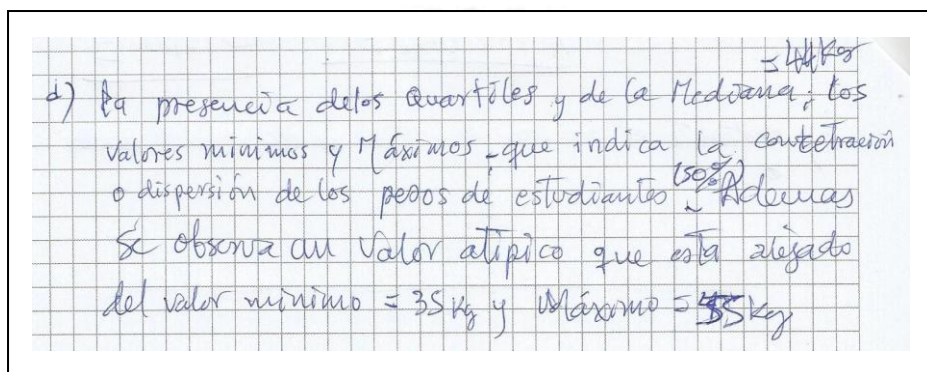 = 44 Kg
d) La presencia delos Quartiles y de la Mediana; los
Valores minimos y Máximos - que indica la contetración
o dispersión de los pesos de estudiantes (50%). Ademas
Se observa un valor atípico que está alejado
del valor minimo = 35 Kg y Máximo = 55 Kg